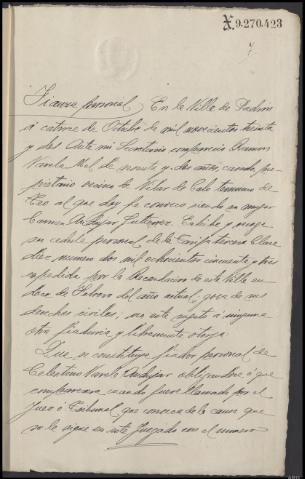 X.9.270.423
7
Fianza personal, En la Villa de Padron
á catorce de Octubre de mil novecientos treinta
y dos. Ante mi Secretario comparecio Ramon
Varela de noventa y dos años, casado pro-
pietario vecino de Vilar de Calo termino de
Teo al que doy fe conozco siendo su mujer
Carmen Gutierrez. Exhibe y recoge
su cedula personal de la tarifa tercera clase
diez numero dos mil ochocientos cincuenta y tres
expedida por la Recaudacion de esta Villa en
doce de Febrero del año actual; goza de sus
derechos civiles; no está sujeto á ninguna
otra fiaduria y libremente otorga
Que se constituye fiador personal de
Celestino Varela obligandose á que
comparecera cuando fuere llamado por el
Juez ó Tribunal que conozca de la causa que
se le sigue en este Juzgado con el numero